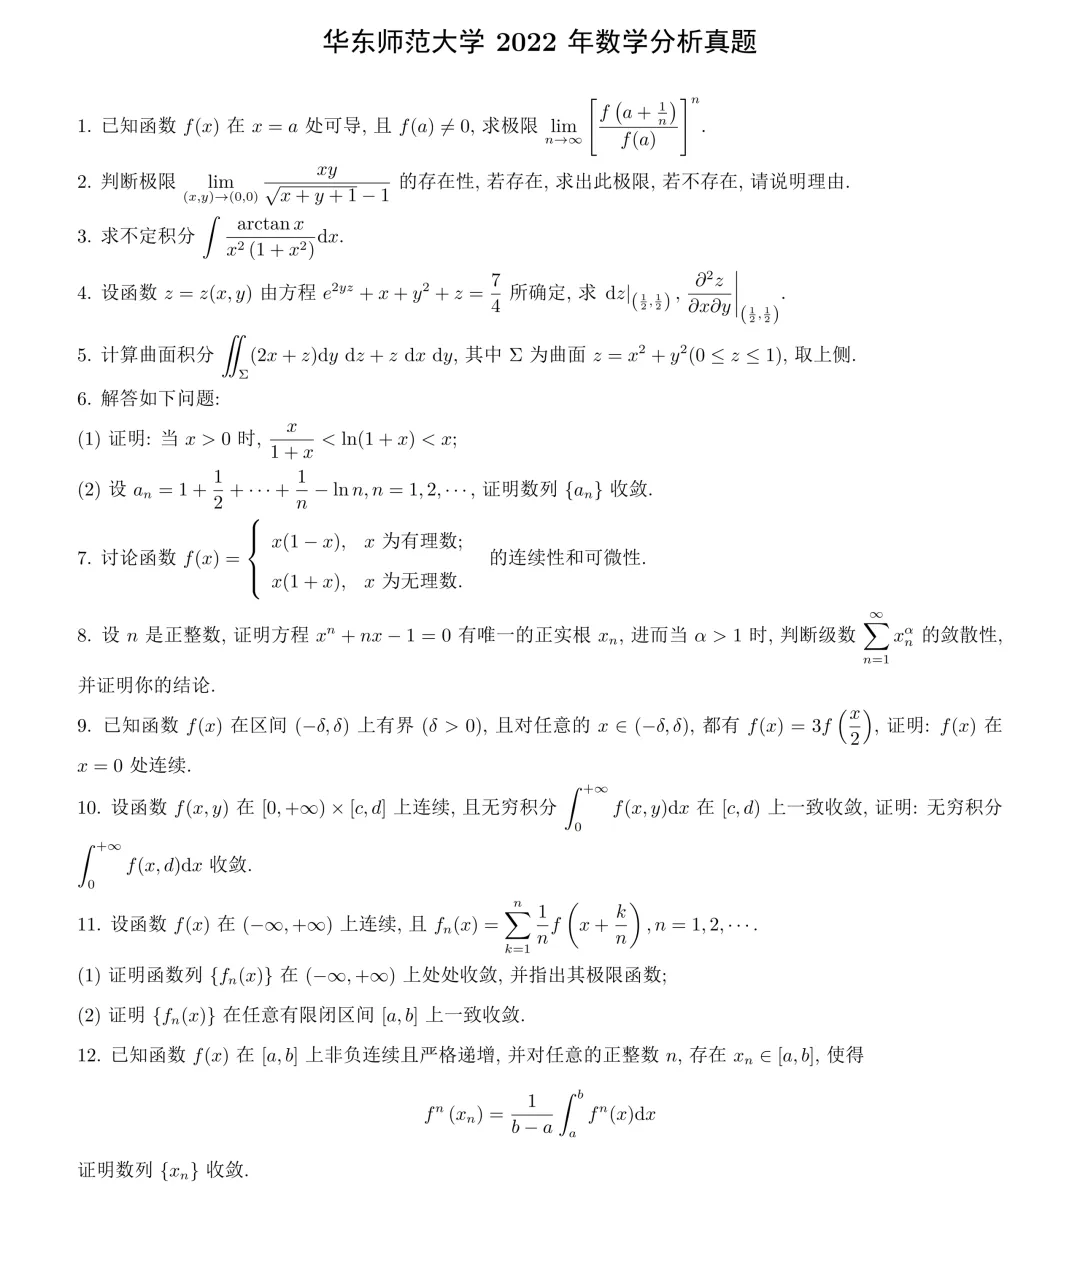 华东师范大学 2022 年数学分析真题
1. 已知函数 $f(x)$ 在 $x=a$ 处可导, 且 $f(a) \neq 0$, 求极限 $\lim_{n\to\infty}\left[\frac{f\left(a+\frac{1}{n}\right)}{f(a)}\right]^n$.
2. 判断极限 $\lim_{(x,y)\to(0,0)}\frac{xy}{\sqrt{x+y+1}-1}$ 的存在性, 若存在, 求出此极限, 若不存在, 请说明理由.
3. 求不定积分 $\int\frac{\arctan x}{x^2(1+x^2)}\mathrm{d}x$.
4. 设函数 $z=z(x,y)$ 由方程 $e^{2yz}+x+y^2+z=\frac{7}{4}$ 所确定, 求 $\mathrm{d}z|_{\left(\frac{1}{2},\frac{1}{2}\right)}$, $\left.\frac{\partial^2 z}{\partial x\partial y}\right|_{\left(\frac{1}{2},\frac{1}{2}\right)}$.
5. 计算曲面积分 $\iint_{\Sigma}(2x+z)\mathrm{d}y\,\mathrm{d}z+z\,\mathrm{d}x\,\mathrm{d}y$, 其中 $\Sigma$ 为曲面 $z=x^2+y^2(0\le z\le 1)$, 取上侧.
6. 解答如下问题:
(1) 证明: 当 $x>0$ 时, $\frac{x}{1+x}<\ln(1+x)<x$;
(2) 设 $a_n=1+\frac{1}{2}+\cdots+\frac{1}{n}-\ln n, n=1,2,\cdots$, 证明数列 $\{a_n\}$ 收敛.
7. 讨论函数 $f(x)=\begin{cases}x(1-x), & x \text{ 为有理数};\\ x(1+x), & x \text{ 为无理数}.\end{cases}$ 的连续性和可微性.
8. 设 $n$ 是正整数, 证明方程 $x^n+nx-1=0$ 有唯一的正实根 $x_n$, 进而当 $\alpha>1$ 时, 判断级数 $\sum_{n=1}^{\infty}x_n^{\alpha}$ 的敛散性,
并证明你的结论.
9. 已知函数 $f(x)$ 在区间 $(-\delta,\delta)$ 上有界 $(\delta>0)$, 且对任意的 $x\in(-\delta,\delta)$, 都有 $f(x)=3f\left(\frac{x}{2}\right)$, 证明: $f(x)$ 在
$x=0$ 处连续.
10. 设函数 $f(x,y)$ 在 $[0,+\infty)\times[c,d]$ 上连续, 且无穷积分 $\int_0^{+\infty}f(x,y)\mathrm{d}x$ 在 $[c,d)$ 上一致收敛, 证明: 无穷积分
$\int_0^{+\infty}f(x,d)\mathrm{d}x$ 收敛.
11. 设函数 $f(x)$ 在 $(-\infty,+\infty)$ 上连续, 且 $f_n(x)=\sum_{k=1}^{n}\frac{1}{n}f\left(x+\frac{k}{n}\right), n=1,2,\cdots$.
(1) 证明函数列 $\{f_n(x)\}$ 在 $(-\infty,+\infty)$ 上处处收敛, 并指出其极限函数;
(2) 证明 $\{f_n(x)\}$ 在任意有限闭区间 $[a,b]$ 上一致收敛.
12. 已知函数 $f(x)$ 在 $[a,b]$ 上非负连续且严格递增, 并对任意的正整数 $n$, 存在 $x_n\in[a,b]$, 使得
$f^n(x_n)=\frac{1}{b-a}\int_a^b f^n(x)\mathrm{d}x$
证明数列 $\{x_n\}$ 收敛.